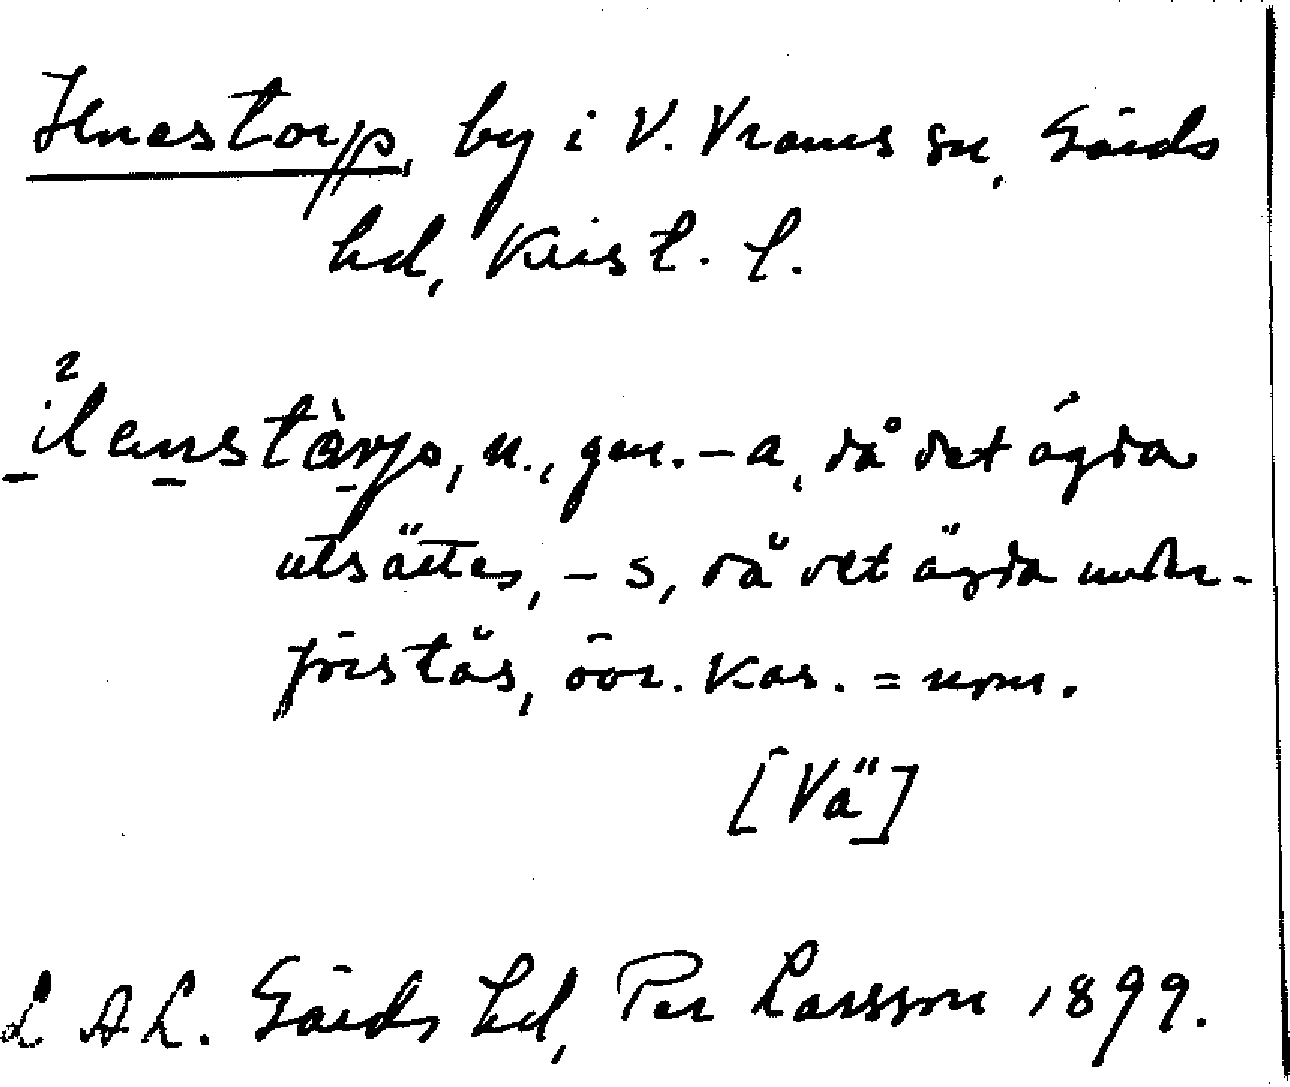 Ilnestorp, by i V. Vrams sn, Gärds
hd, Krist. l.
²ilenstàrp, n., gen. – a, då det ägda
utsättes, – s, då det ägda under-
förstås, övr. kas. = nom.
[Vä]
LAL. Gärds hd, Per Larsson 1899.